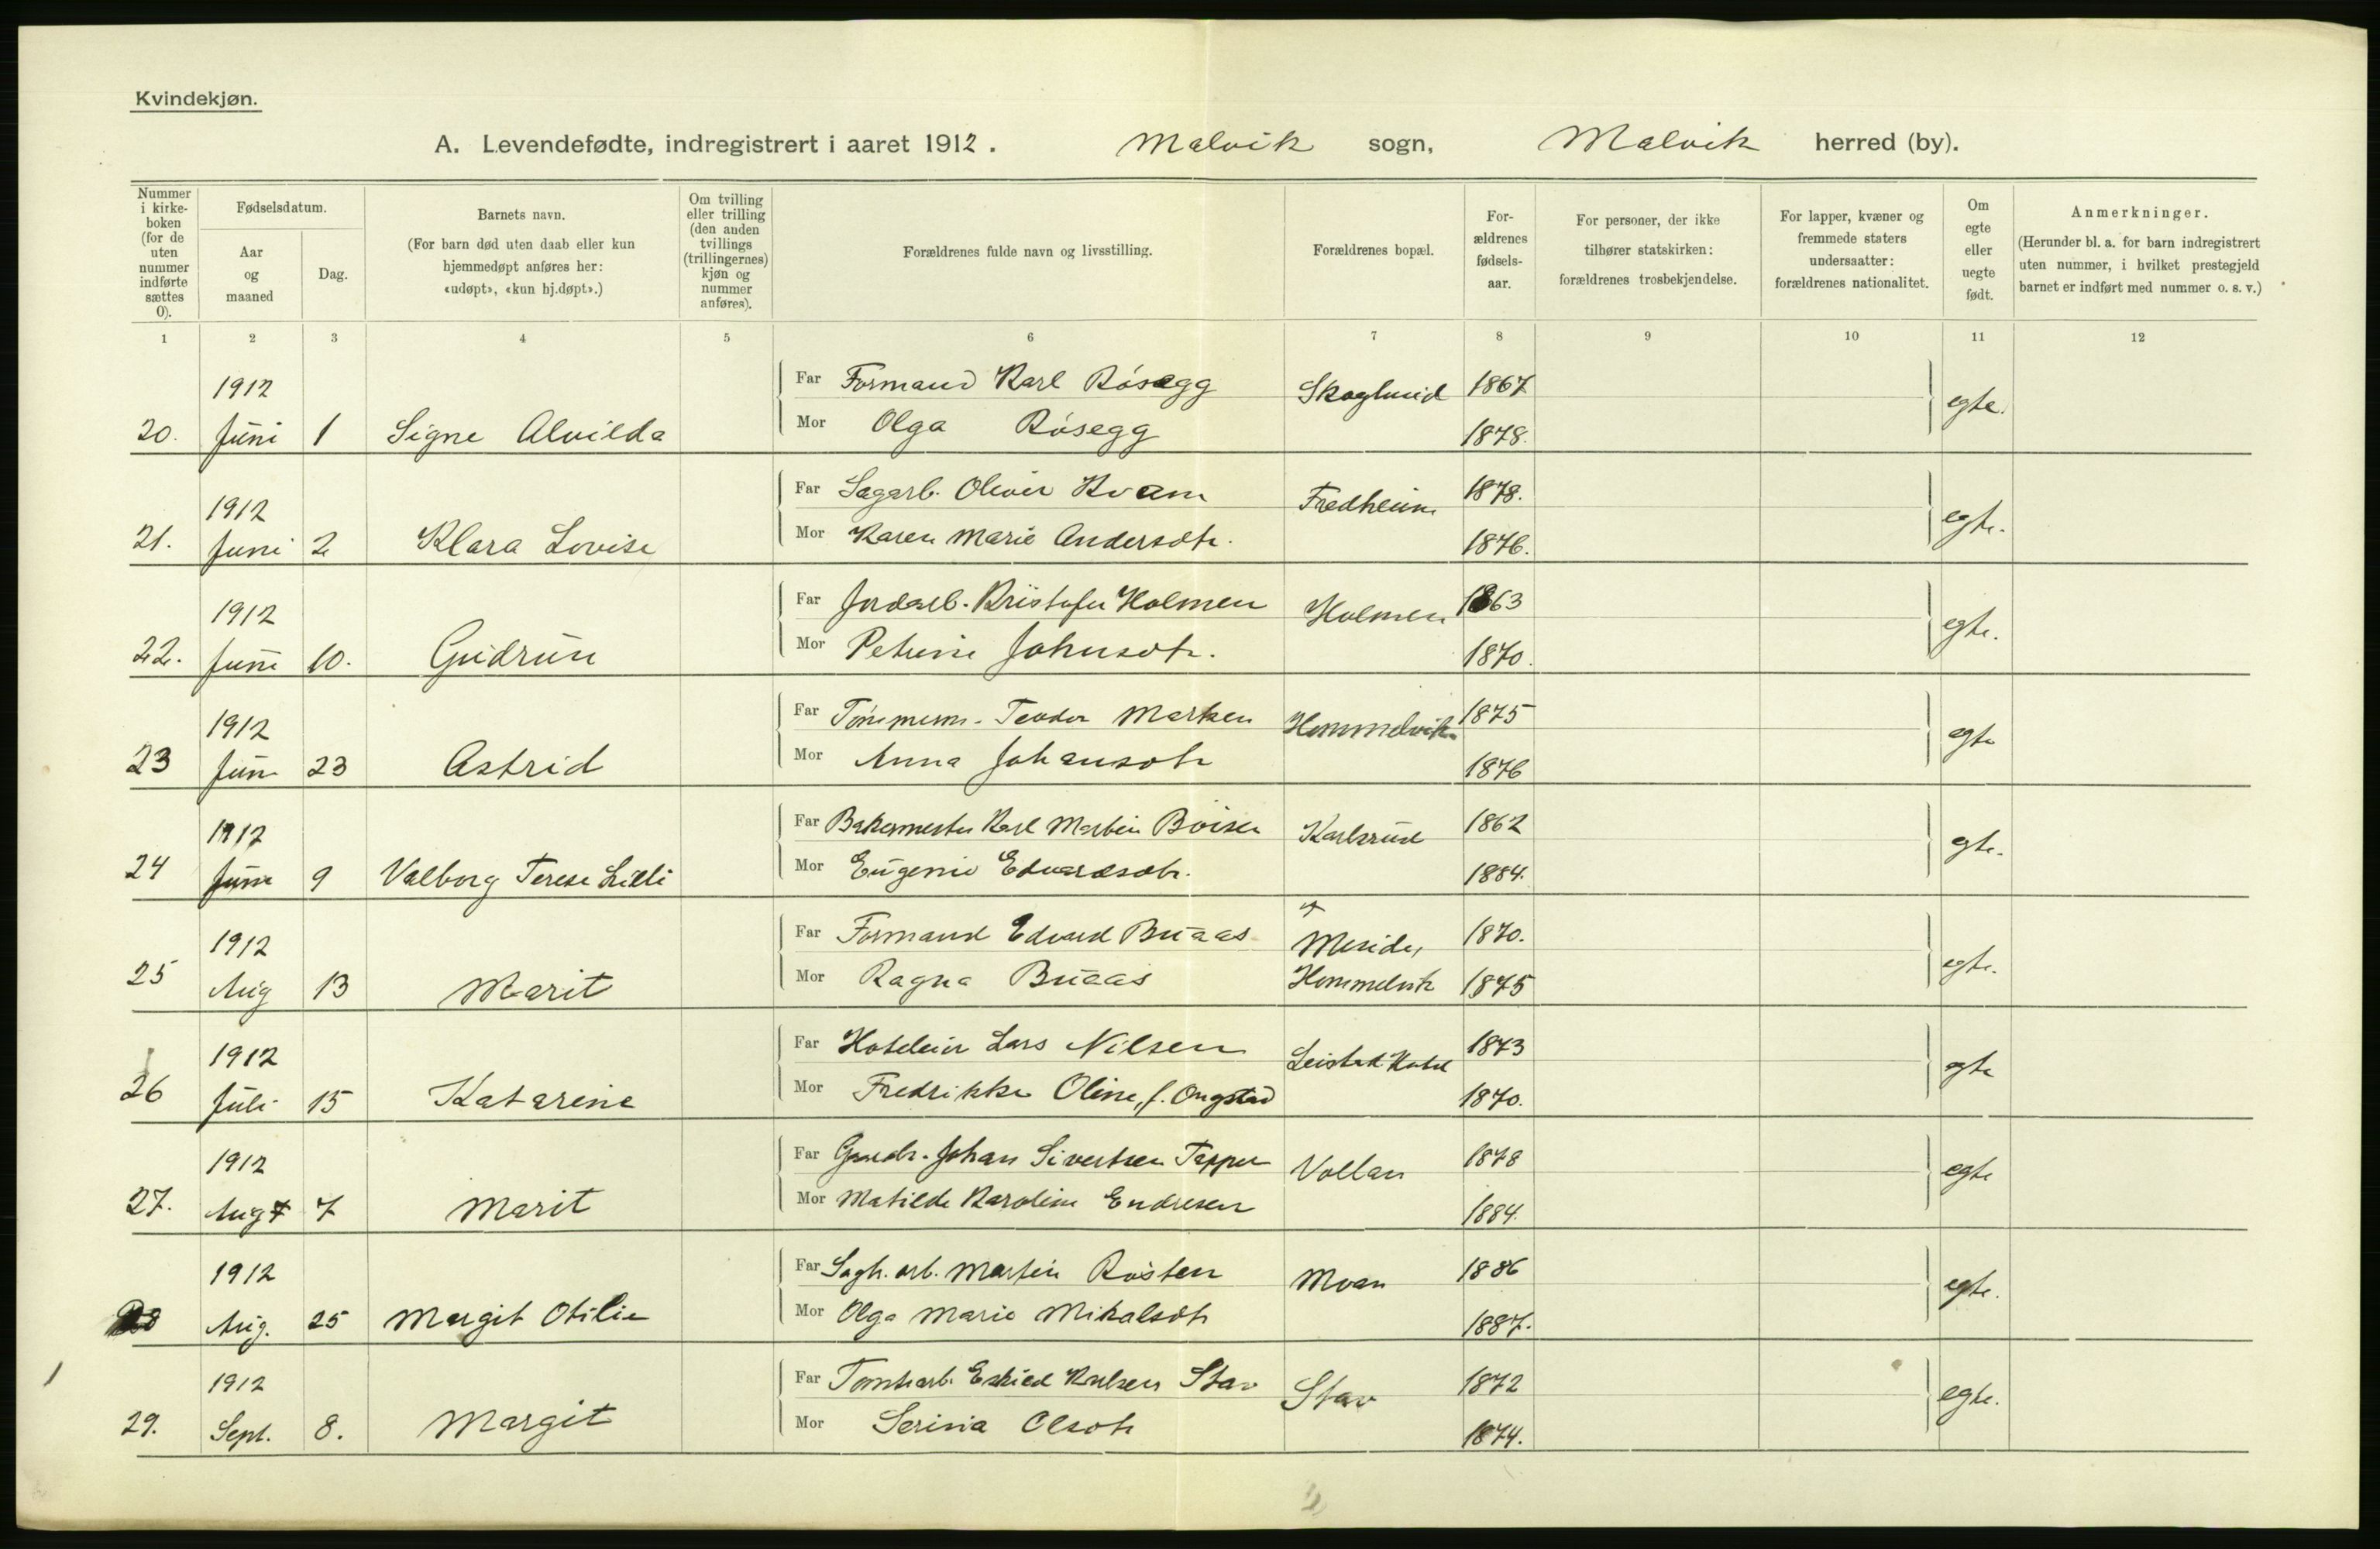 Kvindekjøn.
A. Levendefødte, indregistrert i aaret 1912. Malvik sogn, Malvik herred (by).
Nummer i kirke-boken (for de uten nummer indførte sættes 0).
Fødselsdatum.
Aar og maaned
Dag.
Barnets navn.
(For barn død uten daab eller kun hjemmedøpt anføres her: «udøpt», «kun hj.døpt».)
Om tvilling eller trilling (den anden tvillings (trillingernes) kjøn og nummer anføres).
Forældrenes fulde navn og livsstilling.
Forældrenes bopæl.
For-ældrenes fødsels-aar.
For personer, der ikke tilhører statskirken: forældrenes trosbekjendelse.
For lapper, kvæner og fremmede staters undersaatter: forældrenes nationalitet.
Om egte eller uegte født.
Anmerkninger.
(Herunder bl. a. for barn indregistrert uten nummer, i hvilket prestegjeld barnet er indført med nummer o. s. v.)
1 2 3 4 5 6 7 8 9 10 11 12
1912 Far Formand Karl Rósegg Skoglund 1867 egte.
20. Juni 1 Signe Alvilda Mor Olga Rósegg 1878.
1912 Far Sagarb. Oliver Kvam Fredheim 1878. egte.
21. Juni 2 Klara Lovise Mor Karen Marie Andersdtr. 1876.
1912 Far Jordarb. Kristofer Holmen Holmen 1863 egte.
22. Juni 10. Gudrun Mor Petrine Johnsdtr. 1870.
1912 Far Tömmerm. Teodor Marken Hommelvik 1875 egte
23 Juni 23 Astrid Mor Anna Johansdtr 1876
1912 Far Bakermester Karl Martin Boisen Karlsrud 1862 egte.
24 Juni 9 Valborg Terese Lilli Mor Eugenie Edvardsdtr. 1884.
1912 Far Formand Edvard Buaas 1870. egte.
25 Aug 13 Marit Mor Ragna Buaas Hommelvik 1875
1912 Far Hoteleier Lars Nilsen Leistad Hotel 1873 egte
26 Juli 15 Katarine Mor Fredrikke Oline, f. Ongstad 1870.
1912 Far Gaardbr. Johan Sivertsen Tapper Vollan 1878 egte
27. Aug 7 Marit Mor Matilde Karoline Endresen 1884.
1912 Far Sagb. arb. Martin Rösten Moan 1886 egte.
Aug. 25 Margit Otilie Mor Olga Marie Mikalsdtr 1887.
1912 Far Tomtearb. Stav Stav 1872 egte.
29. Sept. 8. Margit Mor Serina Olsdtr 1874.